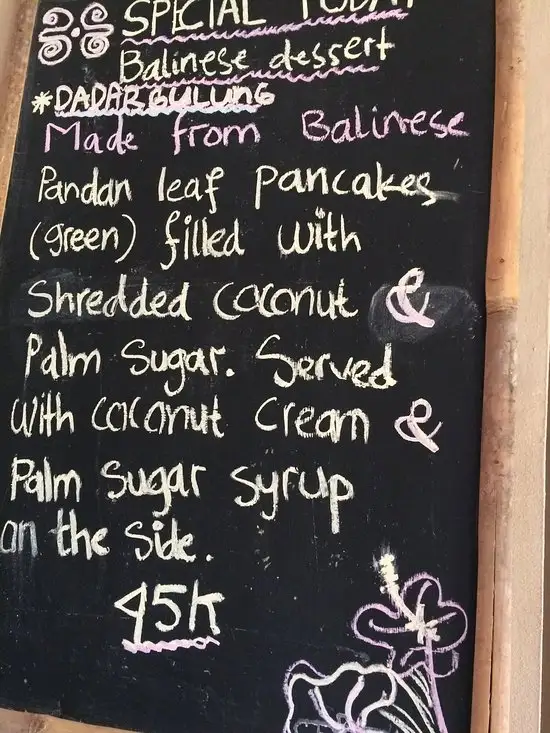 SPECIAL TODAY
Balinese dessert
*DADAR GULUNG
Made from Balinese
Pandan leaf pancakes
(green) filled with
Shredded coconut &
Palm Sugar. Served
with coconut cream &
Palm sugar syrup
on the side.
45K